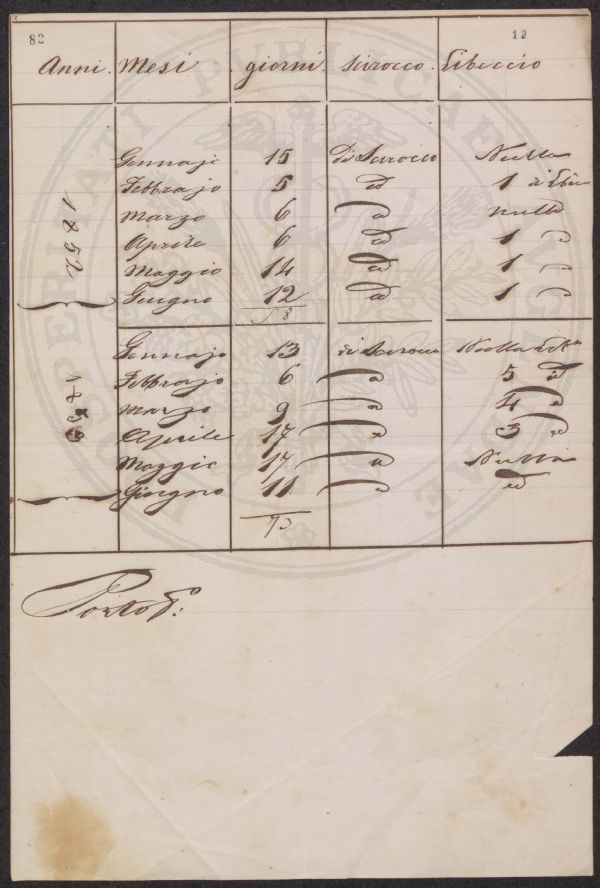 82 12
Anni. Mesi giorni. Scirocco. Libeccio
1852
Gennajo 15 di Scirocco Nulla
Febbrajo 5 id 1
Marzo 6 id nulla
Aprile 6 id 1
Maggio 14 id 1
Giugno 12 id 1
58
Gennajo 13 di Scirocco Nulla
Febbrajo 6 id 5 id
Marzo 9 id 4 id
Aprile 17 id 3 id
Maggio 17 id Nulla
Giugno 11 id id
73
PROSPERITATI PUBLICAE AUGENDAE